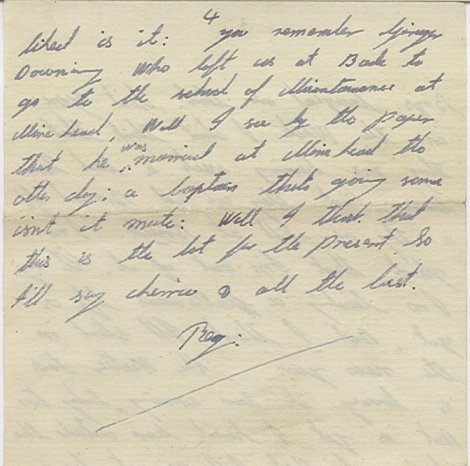 4
liked is it: you remember Ginger
Downing who left us at Bade to
go to the school of Maintanance at
Minehead, Well I see by the paper
that he was married at Minehead the
other day: a Captain thats going some
isnt it mate: Well I think that
this is the lot for the present. So
I'll say cheerio & all the best.
Reg: